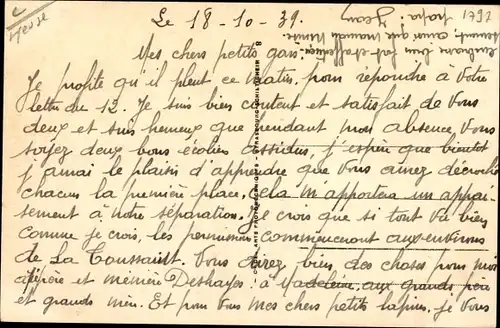 Le 18-10-39.
Mes chers petits gars.
Je profite qu'il pleut ce matin, pour répondre à votre
lettre du 12. Je suis bien content et satisfait de vous
deux et suis heureux que pendant mon absence, vous
soyez deux bons écoliers assidus, j'espère que bientôt
j'aurai le plaisir d'apprendre que vous aurez décroché
chacun la première place, cela m'apportera un appai-
sement à notre séparation. Je crois que si tout va bien
comme je crois, les permissions commenceront aux environs
de La Toussaint. Vous direz bien des choses pour moi
à pépère et mémère Deshayes, à Madeleine, aux grands pères
et grands mères. Et pour vous mes chers petits lapins, je vous
embrasse bien fort et affectueu-
sement ainsi que maman
papa. Jean
1792